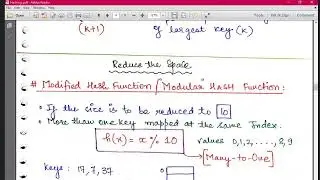 of largest key (k)
(k+1)
Reduce the Space
# Modified Hash Function / "Modular" Hash Function:
• If the size is to be reduced to 10
• More than one key mapped at the same Index.
h(x) = x % 10
values 0,1,2,....,8,9
[Many-to-One]
keys: 17, 7, 37